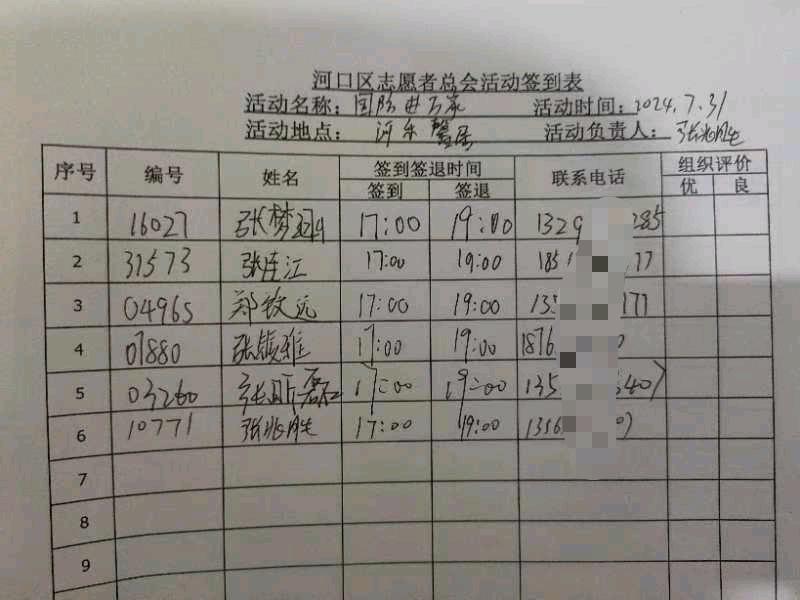 河口区志愿者总会活动签到表
活动名称：国防进万家 活动时间：2024.7.31
活动地点：河东馨居 活动负责人：张兆胜
序号 编号 姓名 签到签退时间 联系电话 组织评价
签到 签退 优 良
1 16027 张梦 17:00 19:00 1329 285
2 31573 张 江 17:00 19:00 185 77
3 04965 郑 远 17:00 19:00 135 177
4 07880 张 雅 17:00 19:00 1876 0
5 03260 张昕磊 17:00 19:00 135 407
6 10771 张兆胜 17:00 19:00 1356 07
7
8
9